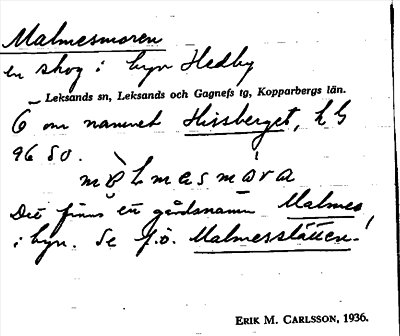 Malmesmoren
en skog i byn Hedby
Leksands sn, Leksands och Gagnefs tg, Kopparbergs län.
Ö om namnet Hissberget, LG
96 SO.
mòLmasmóra
Det finns ett gårdsnamn Malmes
i byn. Se f.ö. Malmesslätten!
ERIK M. CARLSSON, 1936.